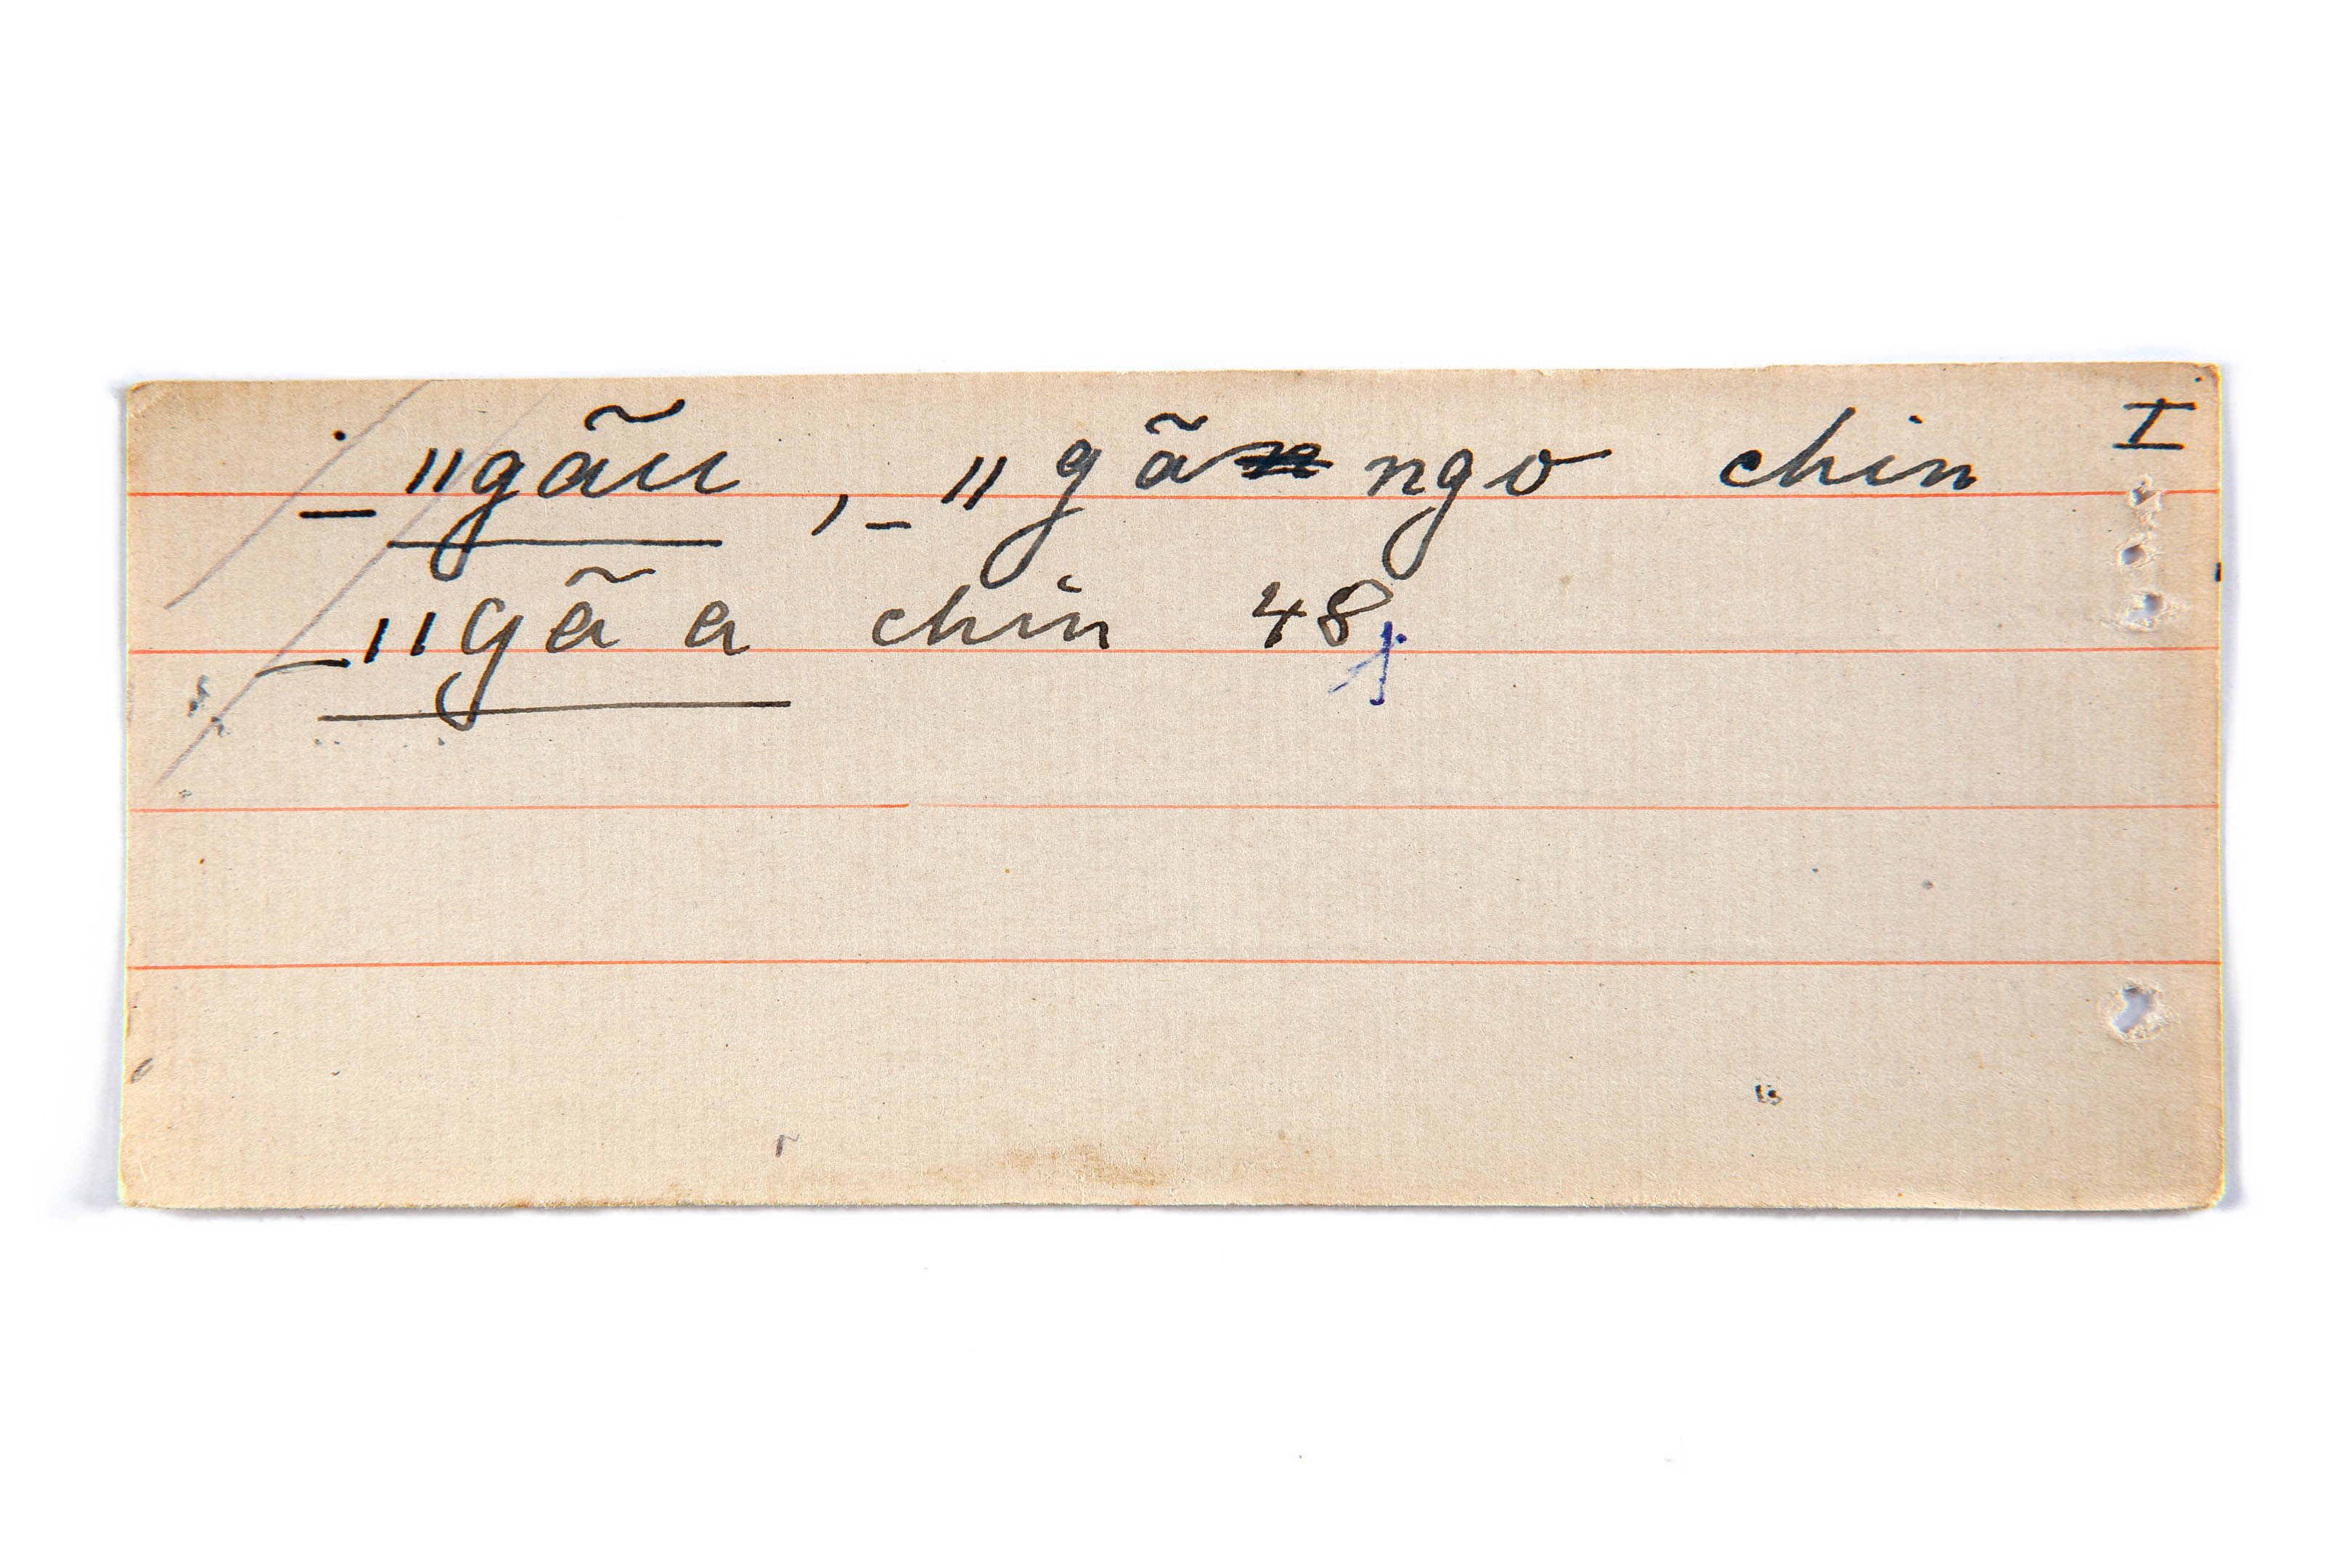 _"gãu , _"gã ngo chin I
_"gã a chin 48